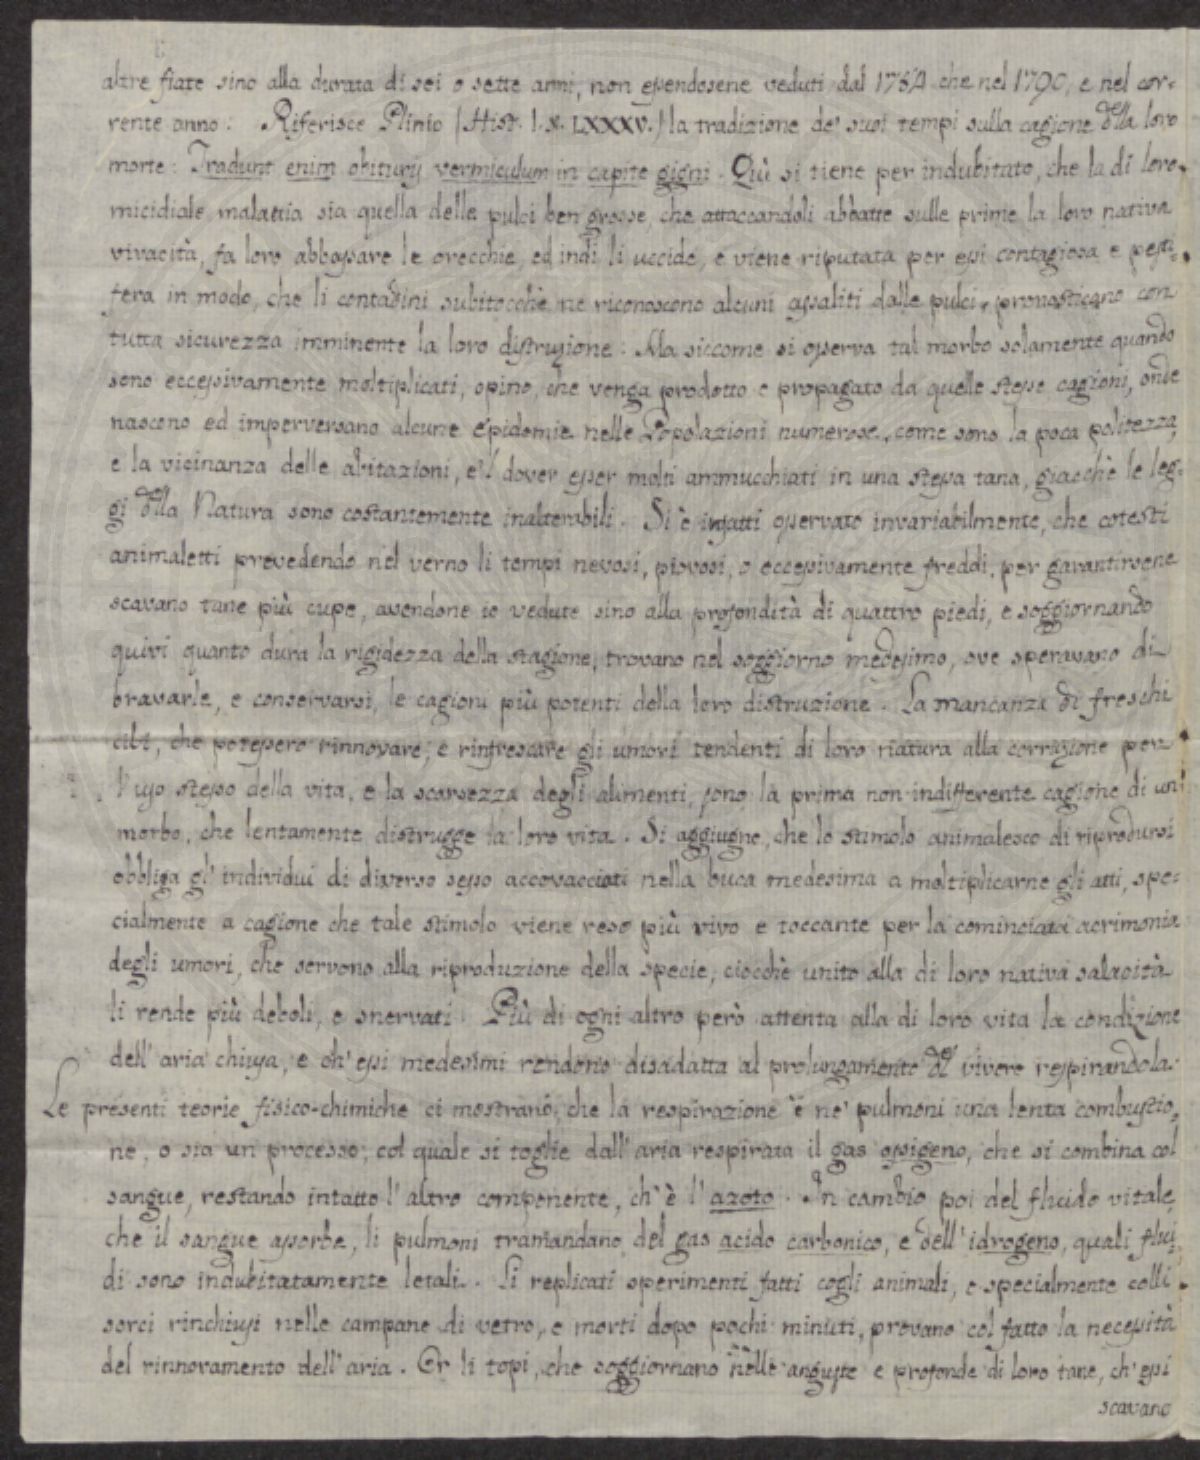 altre fiate sino alla durata di sei o sette anni, non essendosene veduti dal 1784 che nel 1790, e nel cor-
rente anno. Riferisce Plinio (Hist. l. X. LXXXV.) la tradizione de' suoi tempi sulla cagione della loro
morte: Tradunt enim obiturij vermiculum in capite gigni. Quì si tiene per indubitato, che la di loro
micidiale malattia sia quella delle pulci ben grosse, che attaccandoli abbatte sulle prime la loro nativa
vivacità, fa loro abbassare le orecchie, ed indi li uccide, e viene riputata per essi contagiosa e pesti-
fera in modo, che li contadini subitocchè ne riconoscono alcuni assaliti dalle pulci, pronosticano con
tutta sicurezza imminente la loro distruzione. Ma siccome si osserva tal morbo solamente quando
sono eccessivamente moltiplicati, opino, che venga prodotto e propagato da quelle stesse cagioni, onde
nascono ed imperversano alcune epidemie nelle Popolazioni numerose, come sono la poca politezza,
e la vicinanza delle abitazioni, e'l dover esser molti ammucchiati in una stessa tana, giacchè le leg-
gi della Natura sono costantemente inalterabili. Si è infatti osservato invariabilmente, che cotesti
animaletti prevedendo nel verno li tempi nevosi, piovosi, o eccessivamente freddi, per garantirsene
scavano tane più cupe, avendone io vedute sino alla profondità di quattro piedi, e soggiornando
quivi quanto dura la rigidezza della stagione, trovano nel soggiorno medesimo, ove speravano di
bravarle, e conservarsi, le cagioni più potenti della loro distruzione. La mancanza di freschi
cibi, che potessero rinnovare, e rinfrescare gli umori tendenti di loro natura alla corruzione per
l'uso stesso della vita, e la scarsezza degli alimenti, sono la prima non indifferente cagione di un
morbo, che lentamente distrugge la loro vita. Si aggiugne, che lo stimolo animalesco di riprodursi
obbliga gl'individui di diverso sesso accovacciati nella buca medesima a moltiplicarne gli atti, spe-
cialmente a cagione che tale stimolo viene reso più vivo e toccante per la cominciata acrimonia
degli umori, che servono alla riproduzione della specie, ciocchè unito alla di loro nativa salacità
li rende più deboli, e snervati. Più di ogni altro però attenta alla di loro vita la condizione
dell'aria chiusa, e ch'essi medesimi rendono disadatta al prolungamento del vivere respirandola.
Le presenti teorie fisico-chimiche ci mostrano, che la respirazione è ne' pulmoni una lenta combustio-
ne, o sia un processo, col quale si toglie dall'aria respirata il gas ossigeno, che si combina col
sangue, restando intatto l'altro componente, ch'è l'azoto. In cambio poi del fluido vitale,
che il sangue assorbe, li pulmoni tramandano del gas acido carbonico, e dell'idrogeno, quali flui-
di sono indubitatamente letali. Li replicati sperimenti fatti cogli animali, e specialmente colli
sorci rinchiusi nelle campane di vetro, e morti dopo pochi minuti, provano col fatto la necessità
del rinnovamento dell'aria. Or li topi, che soggiornano nelle anguste e profonde di loro tane, ch'essi
scavano